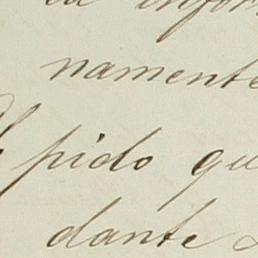 la infor
namente
pido qu
dante